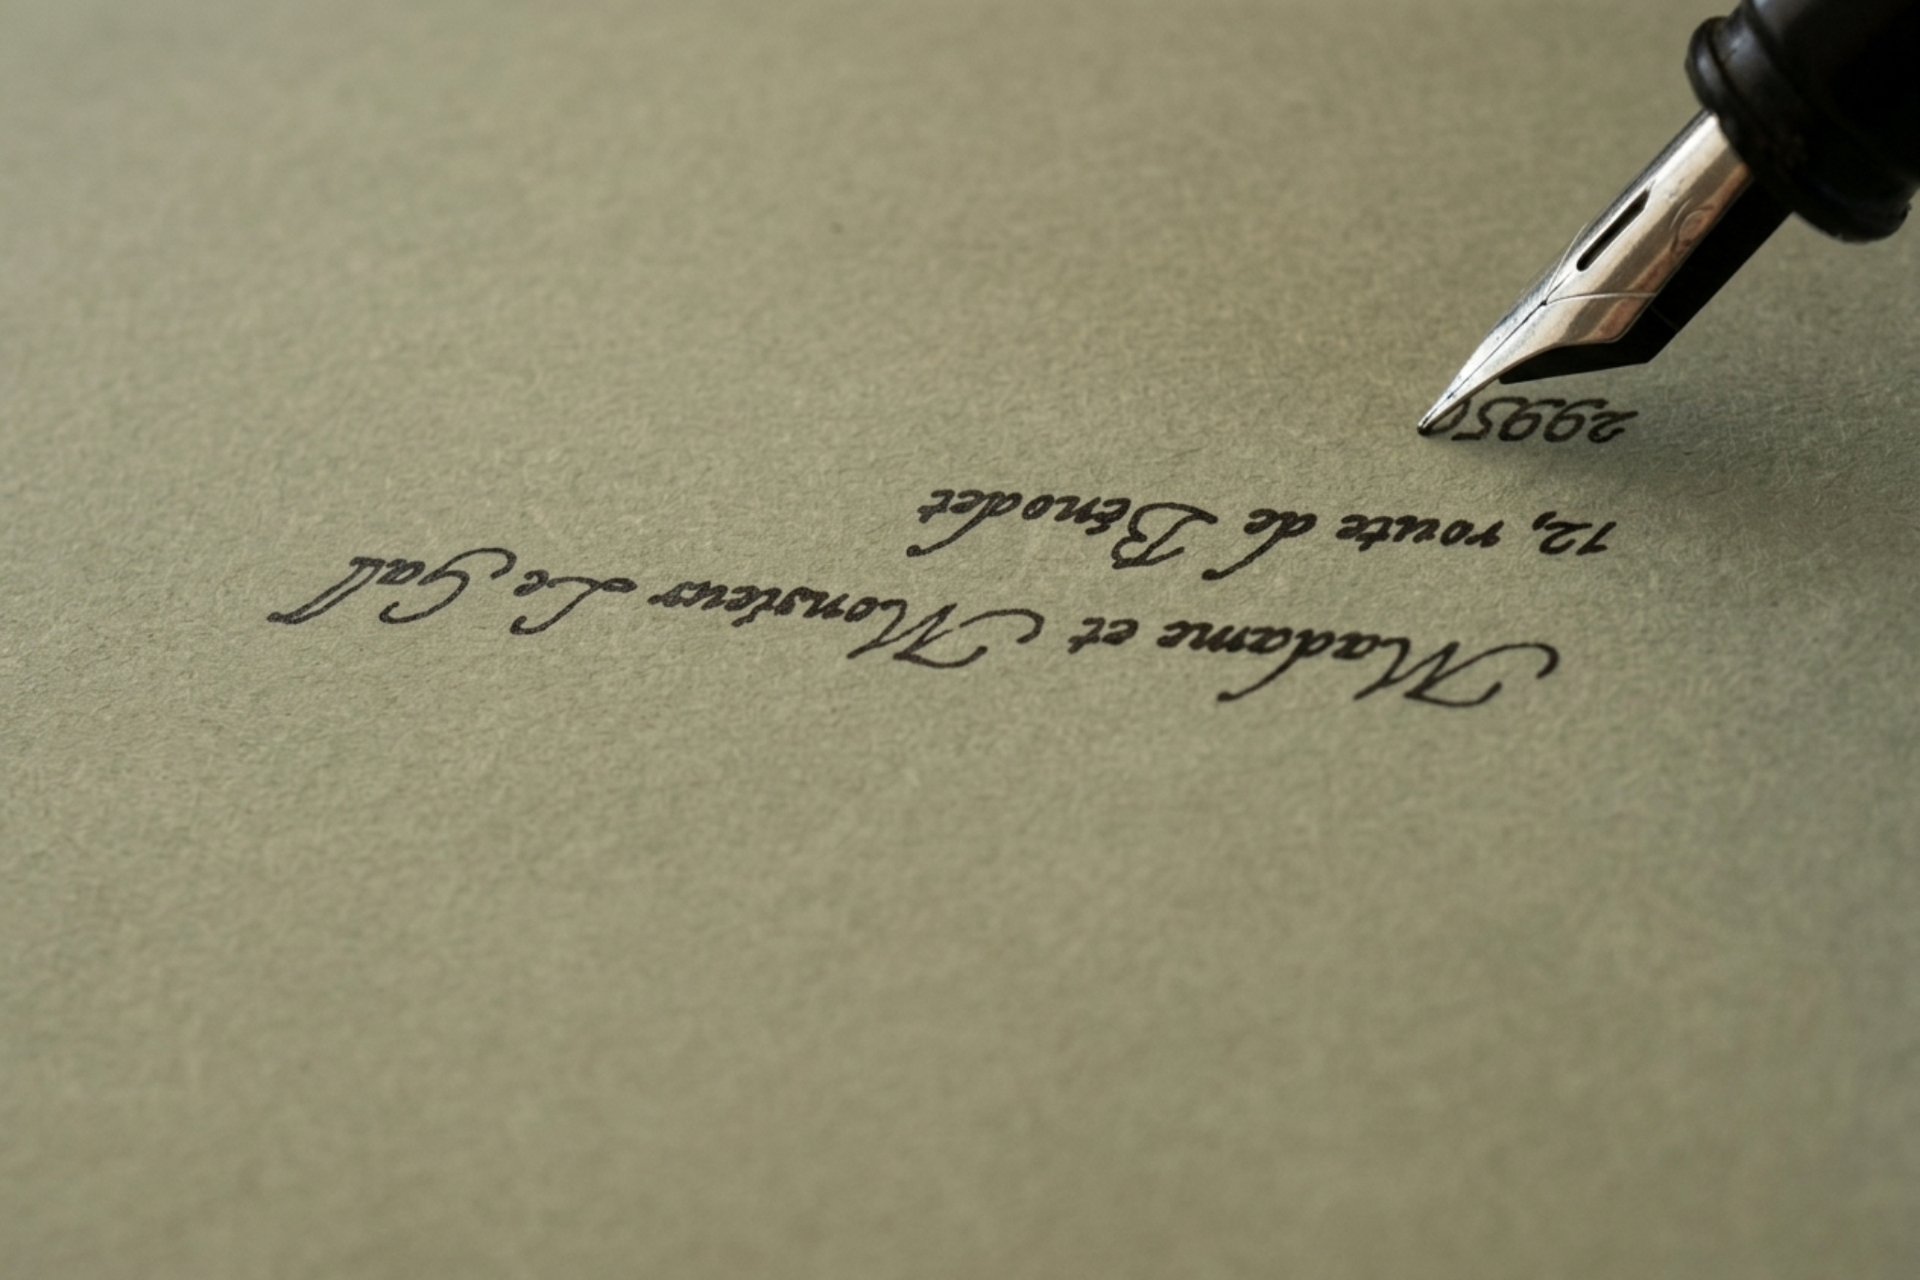 Madame et Monsieur Le Gall
12, route de Bénodet
29950